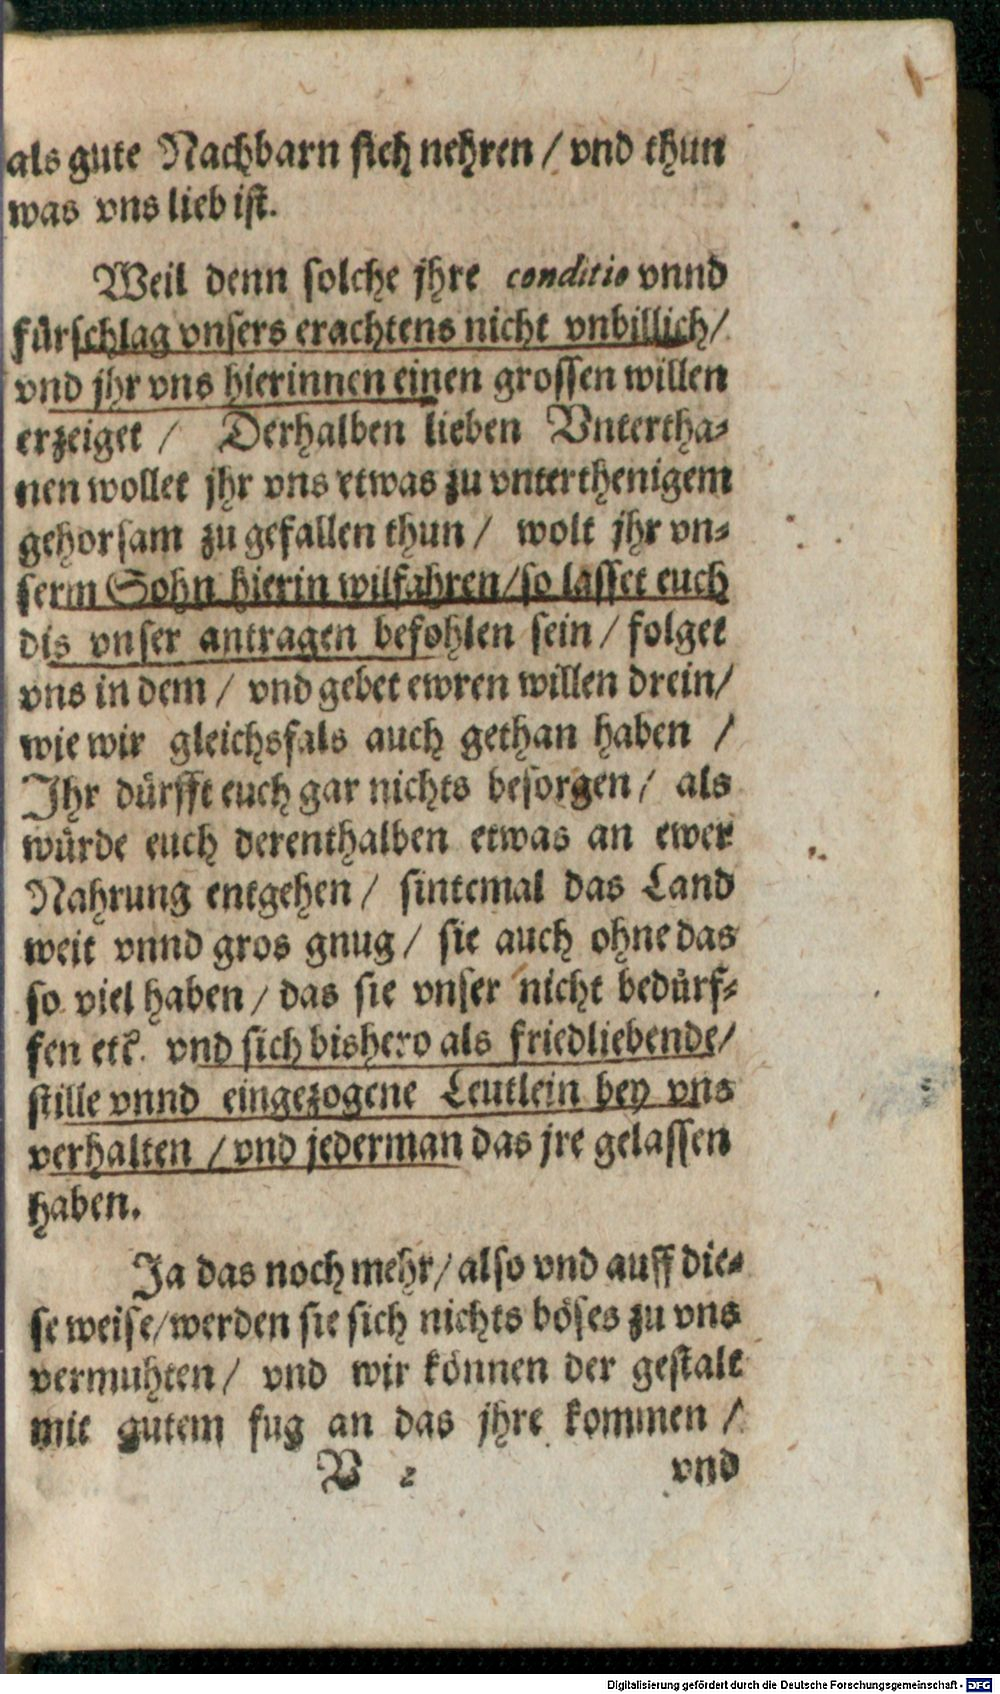 als gute Nachbarn sich nehren / vnd thun
was vns lieb ist.
Weil denn solche jhre conditio vnnd
fürschlag vnsers erachtens nicht vnbillich/
vnd jhr vns hierinnen einen grossen willen
erzeiget / Derhalben lieben Vntertha-
nen wollet jhr vns etwas zu vnterthenigem
gehorsam zu gefallen thun / wolt jhr vn-
serm Sohn hierin wilfahren/so lasset euch
dis vnser antragen befohlen sein / folget
vns in dem / vnd gebet ewren willen drein/
wie wir gleichsfals auch gethan haben /
Ihr dürfft euch gar nichts besorgen / als
würde euch derenthalben etwas an ewer
Nahrung entgehen / sintemal das Land
weit vnnd gros gnug / sie auch ohne das
so viel haben / das sie vnser nicht bedürf-
fen etc. vnd sich bishero als friedliebende/
stille vnnd eingezogene Leutlein bey vns
verhalten / vnd jederman das jre gelassen
haben.
Ja das noch mehr/ also vnd auff die-
se weise/werden sie sich nichts böses zu vns
vermuhten / vnd wir können der gestalt
mit gutem fug an das jhre kommen /
V 2 vnd
Digitalisierung gefördert durch die Deutsche Forschungsgemeinschaft - DFG